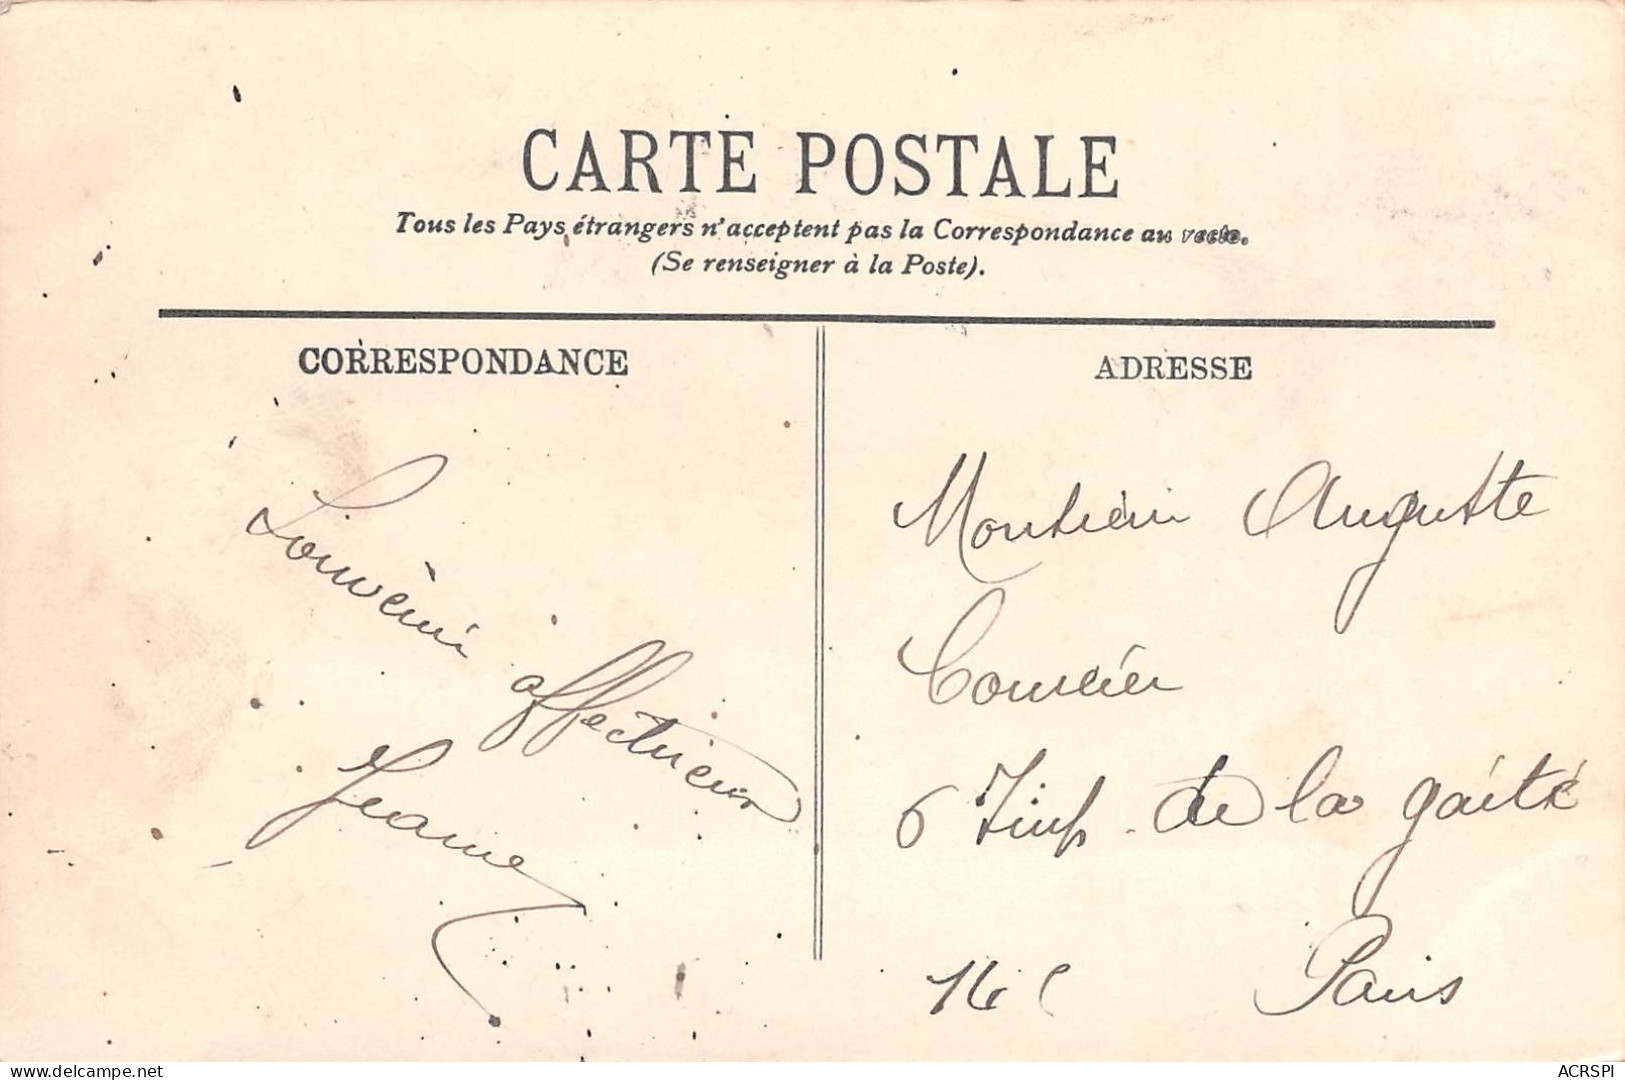 CARTE POSTALE
Tous les Pays étrangers n'acceptent pas la Correspondance au recto.
(Se renseigner à la Poste).
CORRESPONDANCE
Souvenir
affectueux
Jeanne
ADRESSE
Monsieur Auguste
6 Imp. de la gaité
Paris
14 e
delcampe.net
ACRSPI